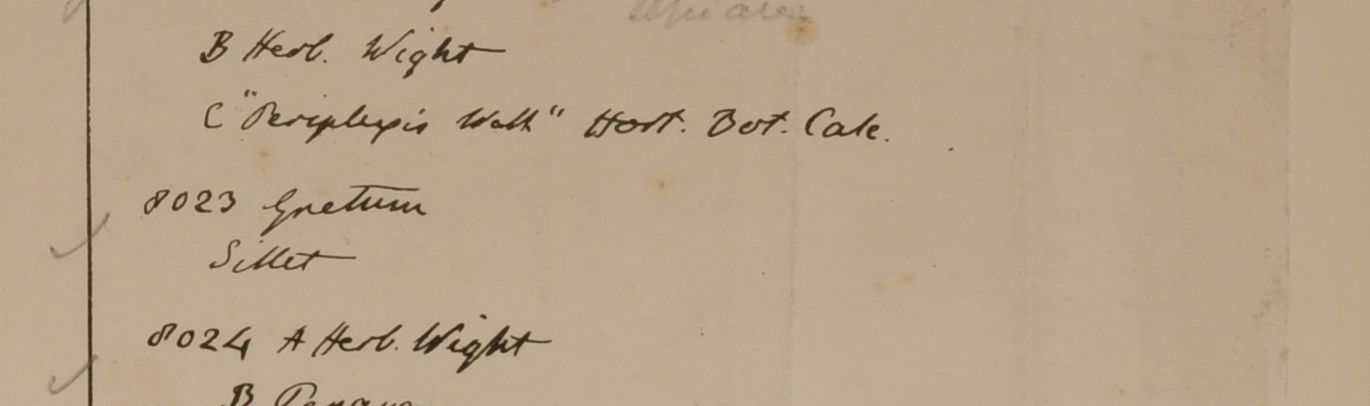 B Herb. Wight
C "Periplexis Wall" Hort. Bot. Calc.
8023 Gnetum
Sillet
8024 A Herb. Wight
B Penang